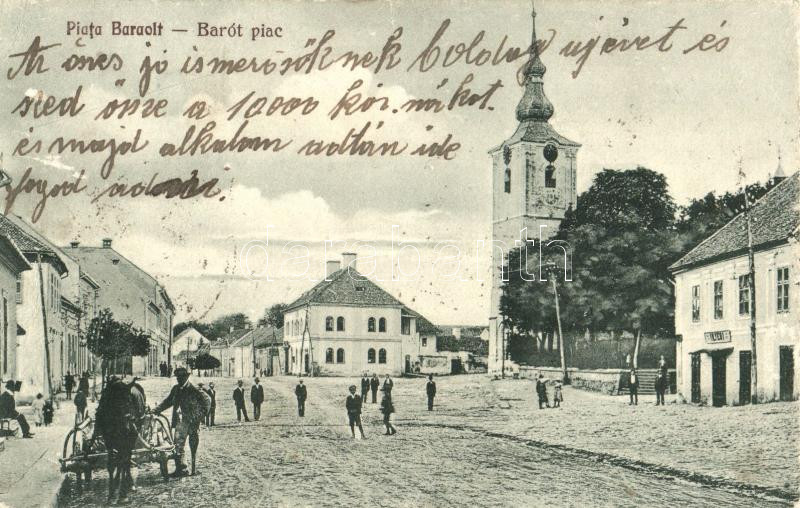 Piaţa Baraolt — Barót piac
Az összes jó ismerősöknek boldog ujévet és
szed össze a 10000 kor. nákot.
és majd alkalom adtán ide
fogod adni.
darabanth